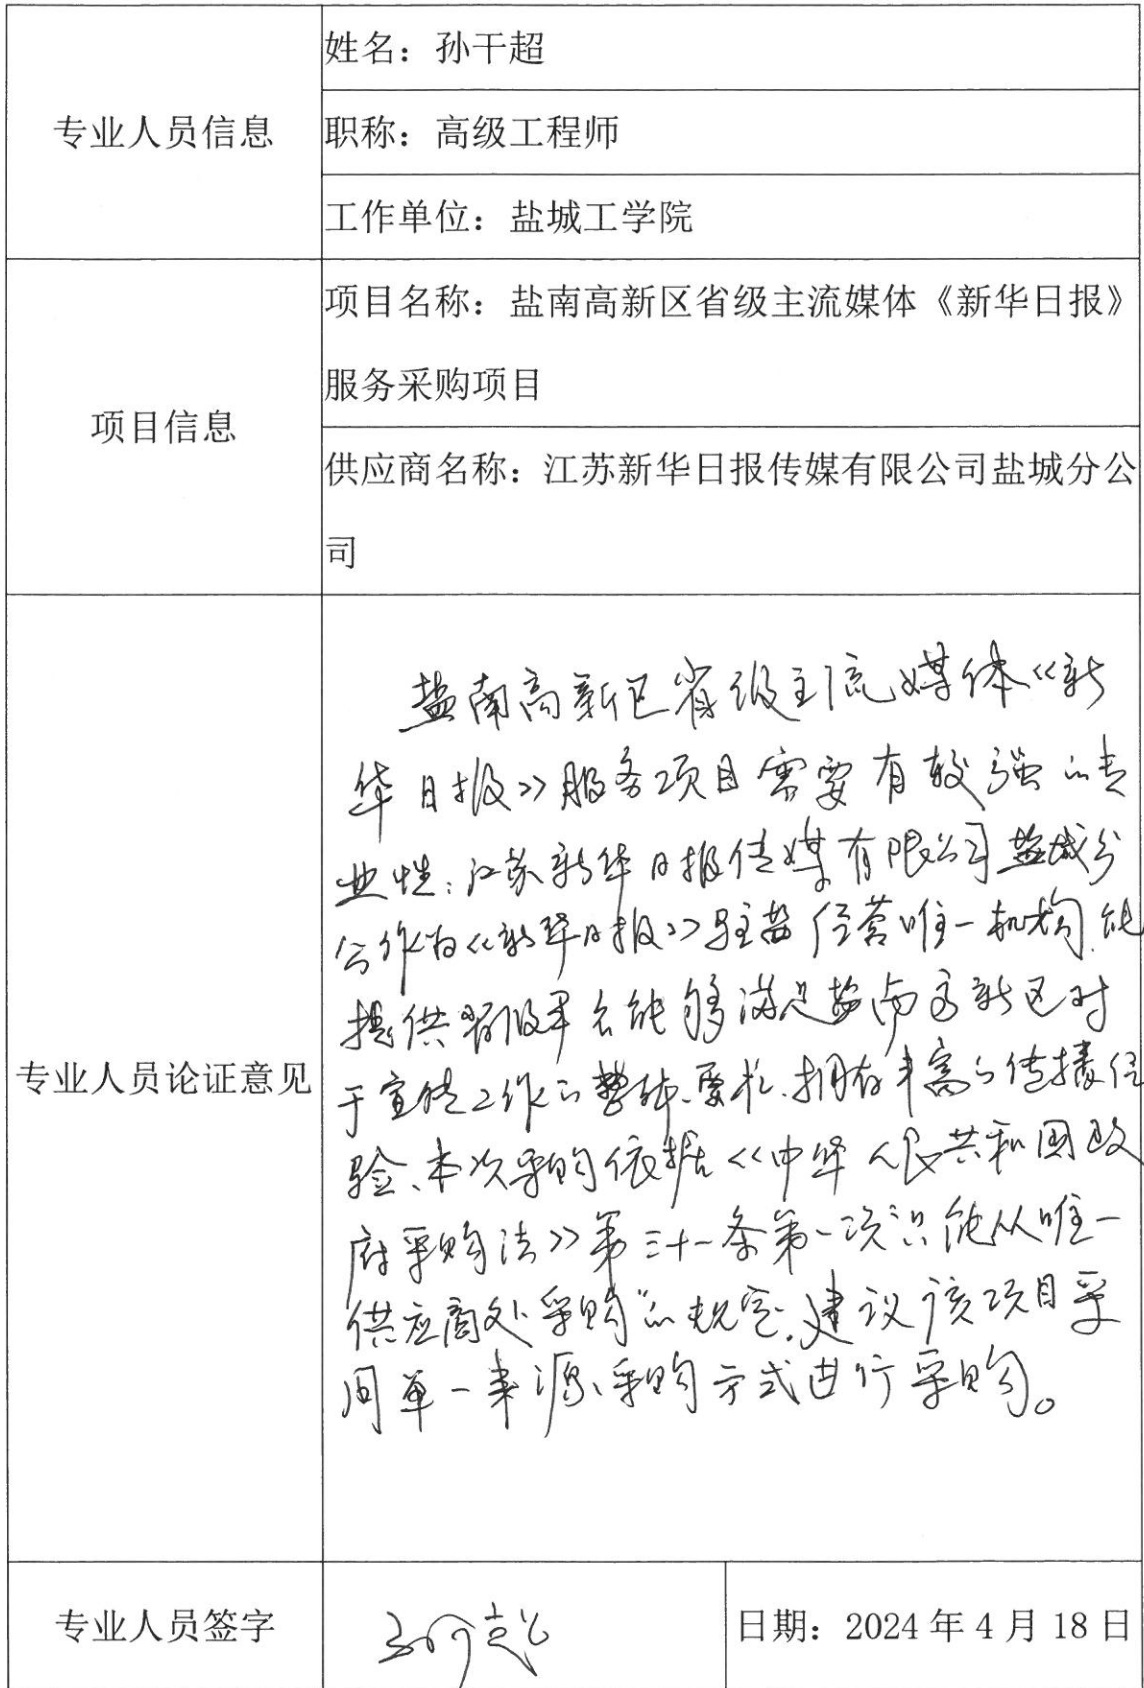 专业人员信息
姓名：孙干超
职称：高级工程师
工作单位：盐城工学院
项目信息
项目名称：盐南高新区省级主流媒体《新华日报》
服务采购项目
供应商名称：江苏新华日报传媒有限公司盐城分公
司
专业人员论证意见
盐南高新区省级主流媒体《新
华日报》服务项目需要有较强的专
业性；江苏新华日报传媒有限公司盐城分
公作为《新华日报》驻盐经营唯一机构，能
提供省级平台能够满足盐南高新区对
于宣传工作的整体要求，拥有丰富的传播经
验、本次采购依据《中华人民共和国政
府采购法》第三十一条第一项只能从唯一
供应商处采购"的规定，建议该项目采
用单一来源采购方式进行采购。
专业人员签字
孙干超
日期：2024年4月18日